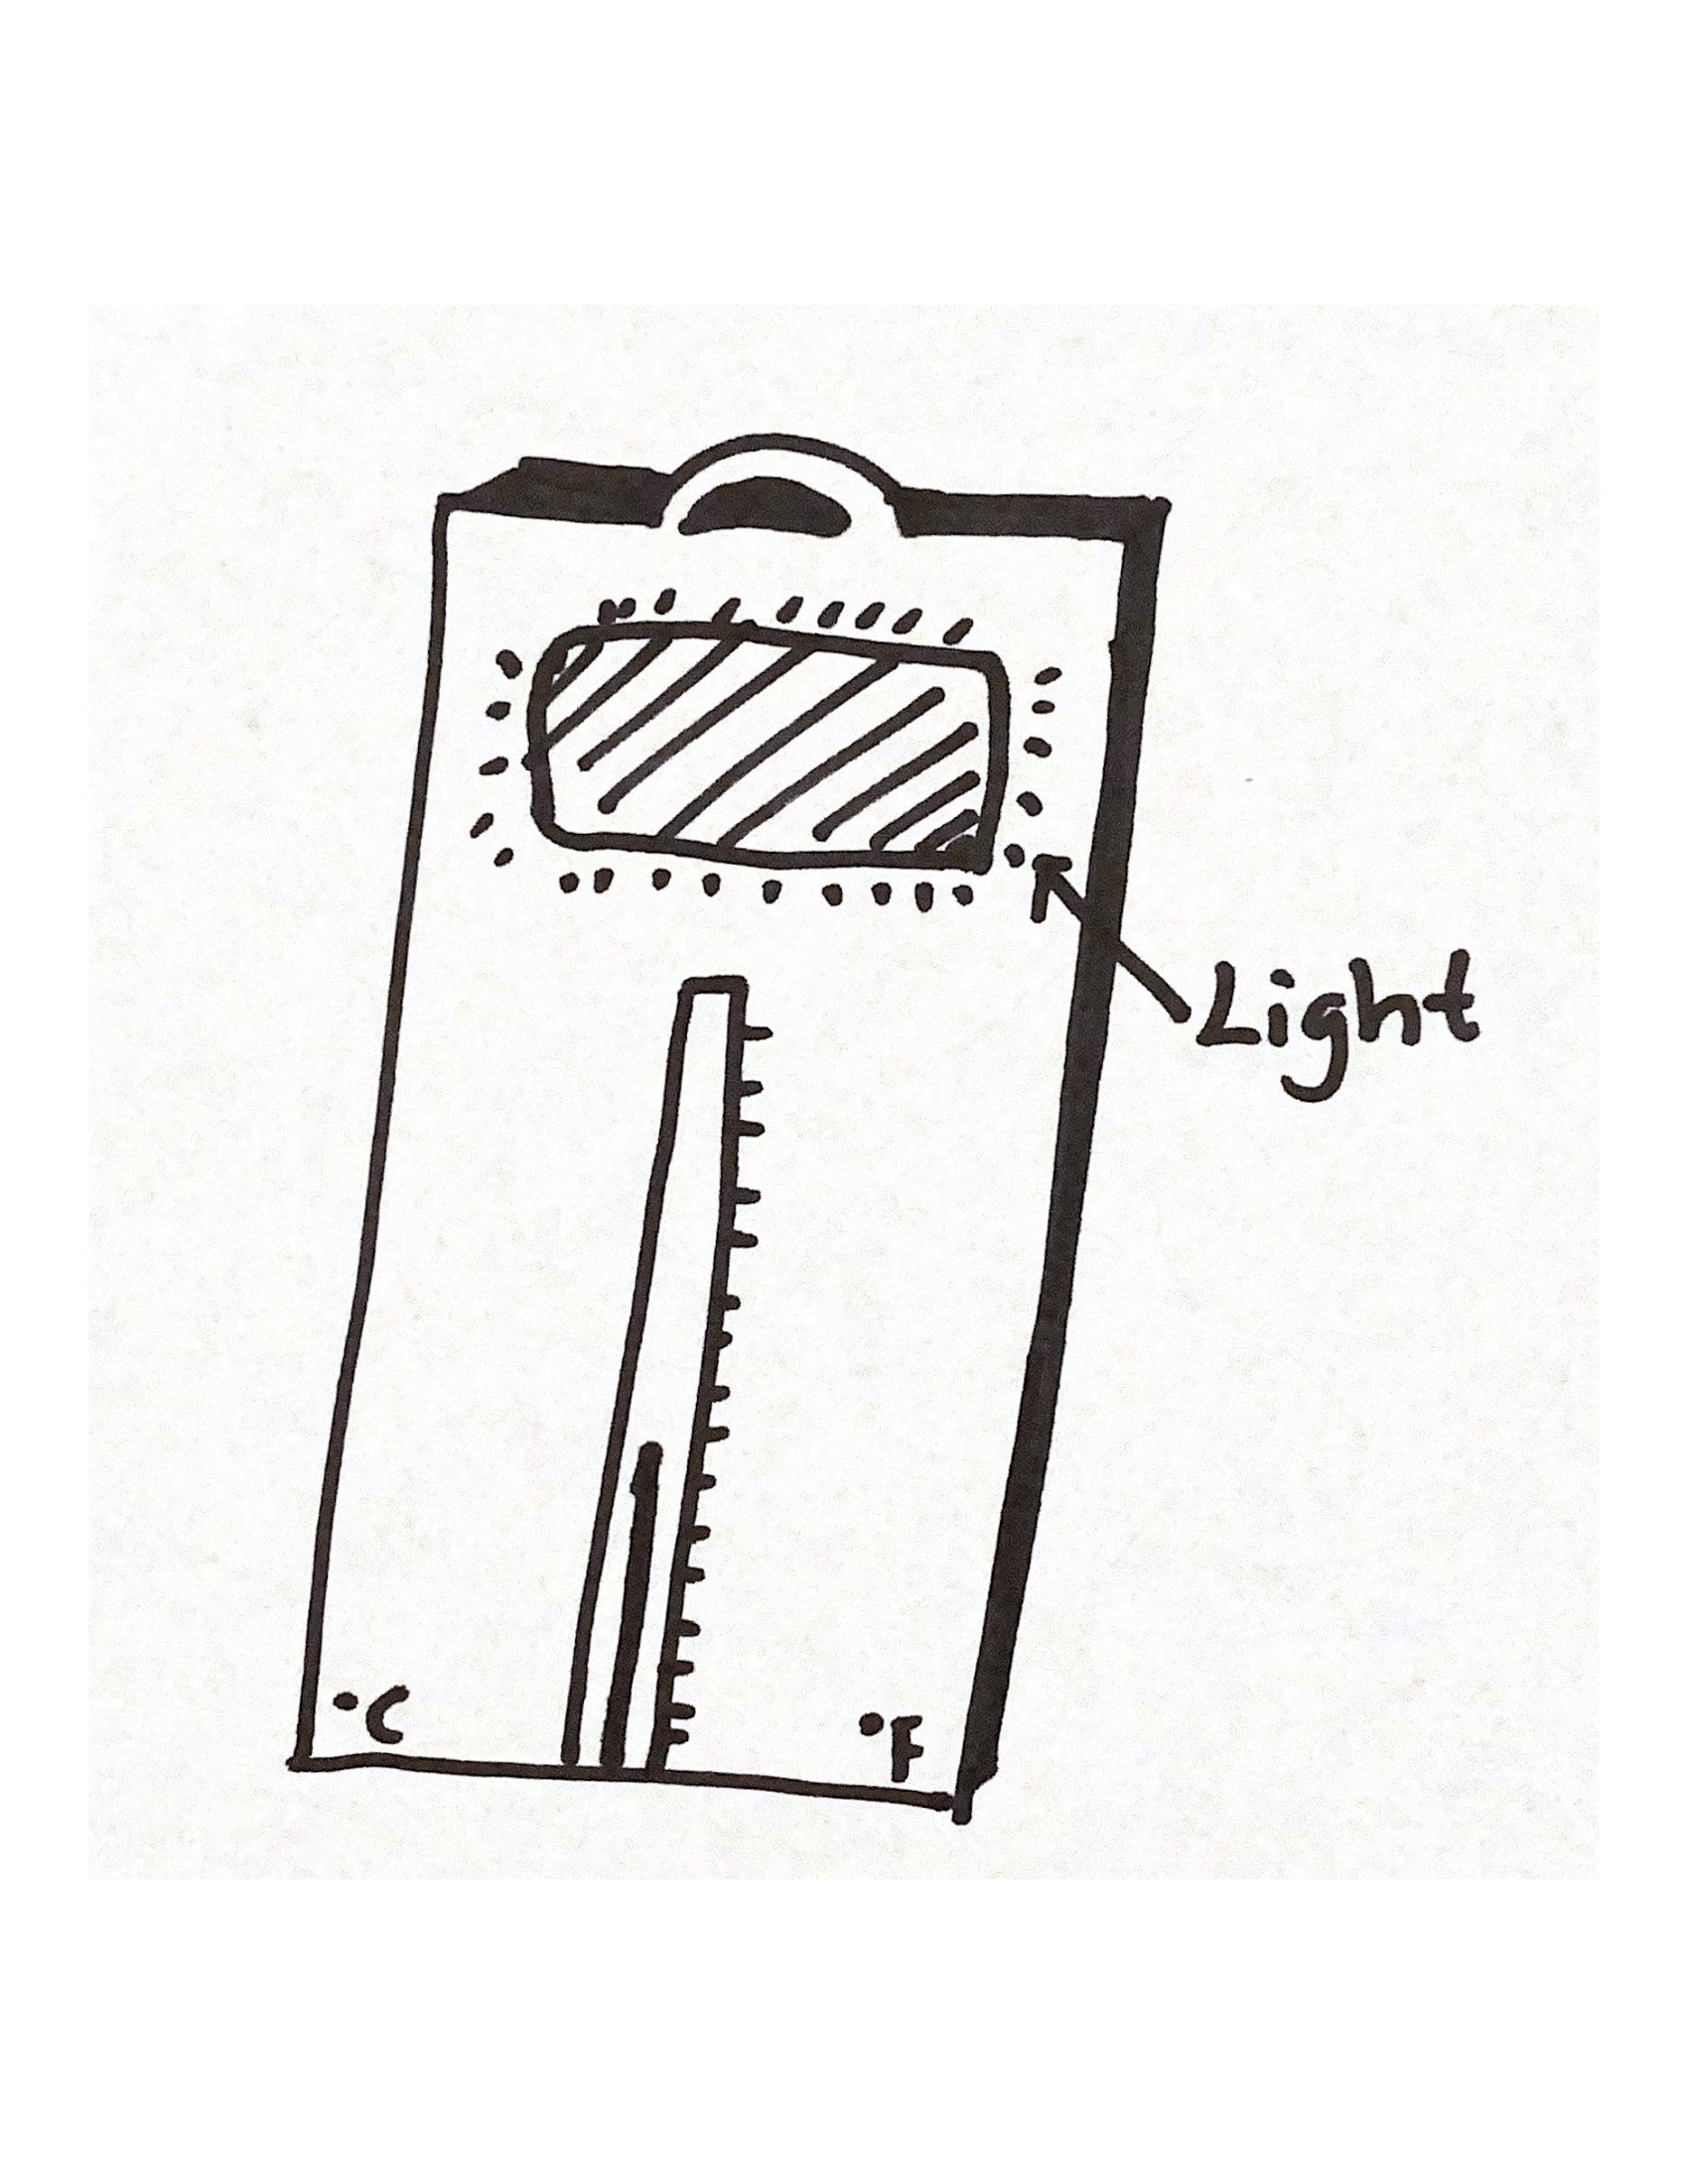 Light
°C
°F